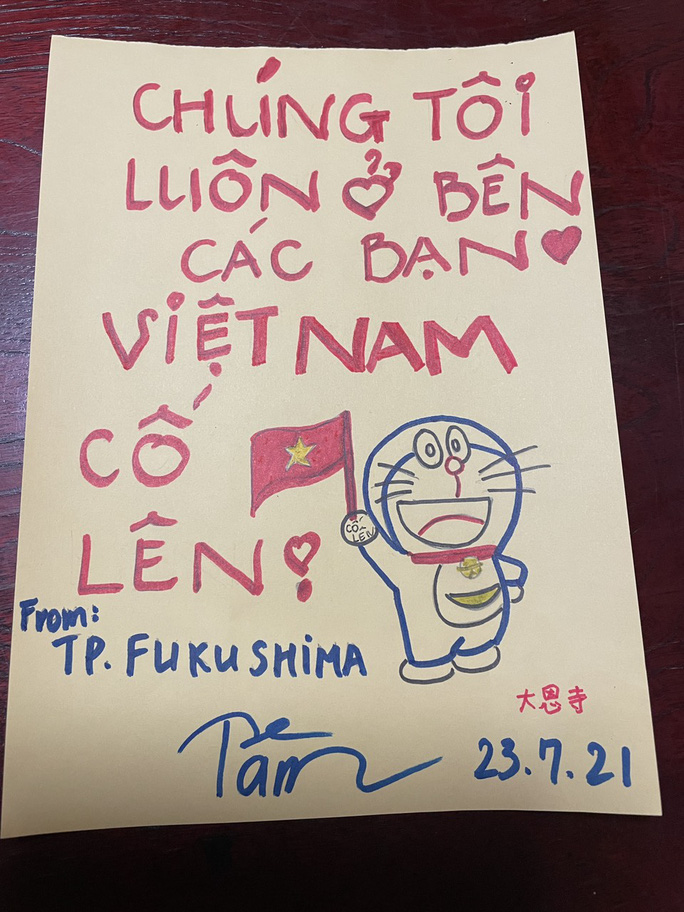 CHÚNG TÔI
LUÔN Ở BÊN
CÁC BẠN
VIỆT NAM
CỐ
LÊN!
CỐ
LÊN
From:
TP. FUKUSHIMA
大恩寺
Tâm
23.7.21